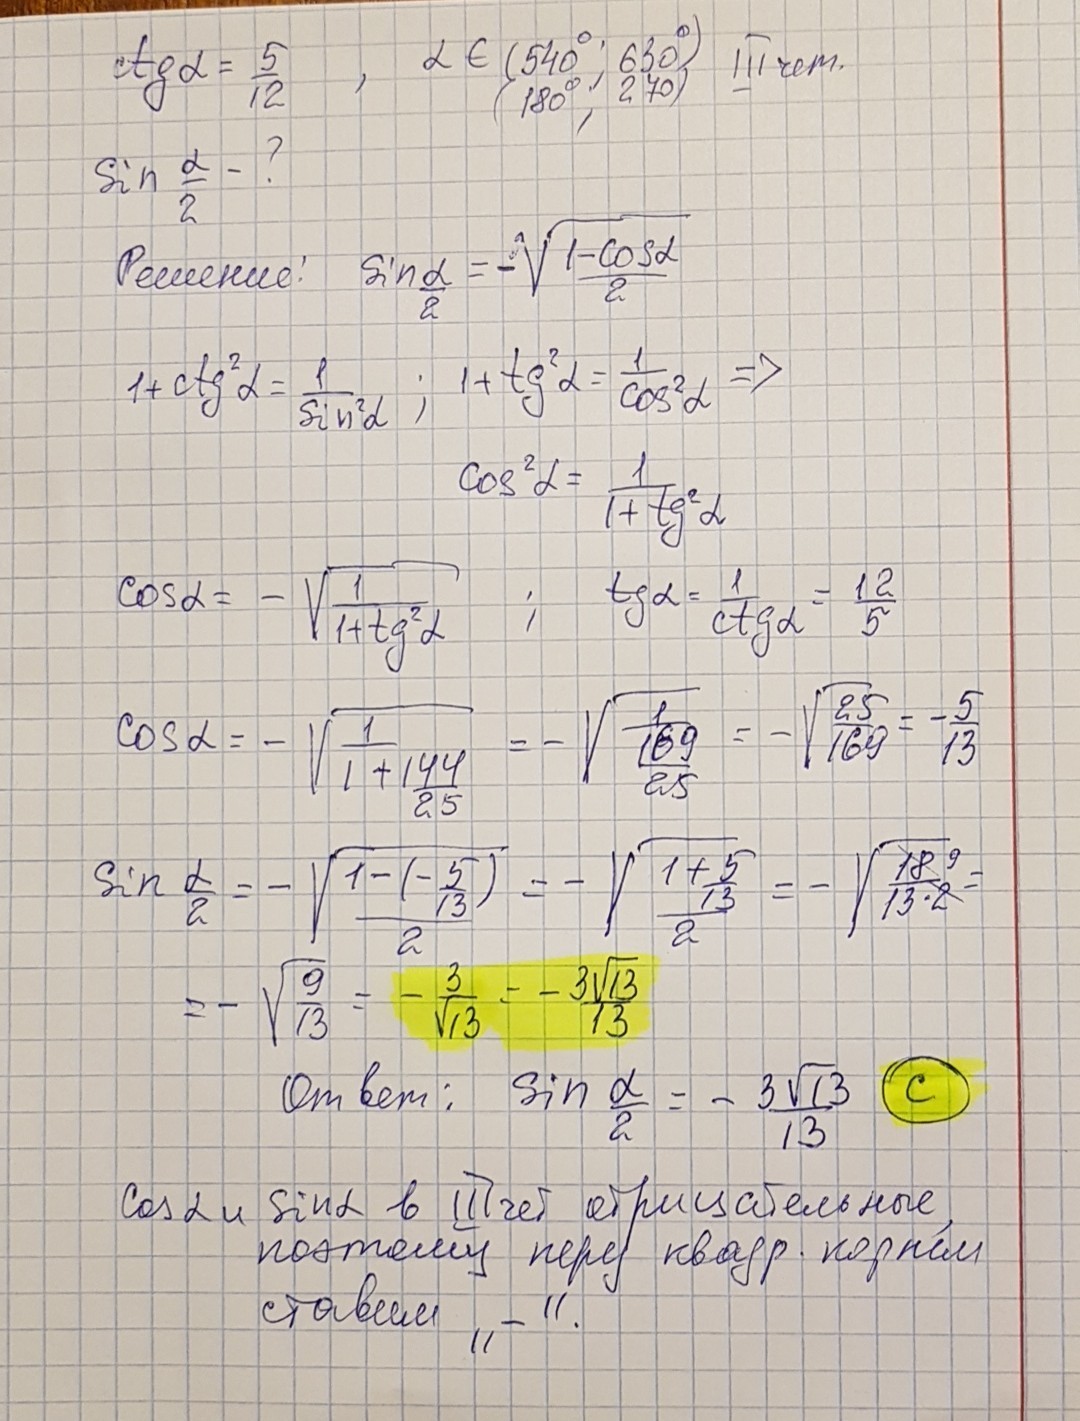 ctgα = 5/12 , α ∈ (540°; 630°) III чет.
(180°; 270)
Sin α/2 - ?
Решение: Sin α/2 = -√((1-cosα)/2)
1+ctg²α = 1/Sin²α ; 1+tg²α = 1/cos²α =>
Cos²α = 1/(1+tg²α)
Cosα = - √(1/(1+tg²α)) ; tgα = 1/ctgα = 12/5
Cosα = - √(1/(1+144/25)) = - √(1/(169/25)) = - √(25/169) = - 5/13
Sin α/2 = - √((1-(-5/13))/2) = - √((1+5/13)/2) = - √(18 9/(13·2)) =
= - √(9/13) = - 3/√13 = - 3√13/13
Ответ: Sin α/2 = - 3√13/13 C
Cosα и Sinα в III чет отрицательные,
поэтому перед квадр. корнем
ставим „-“.